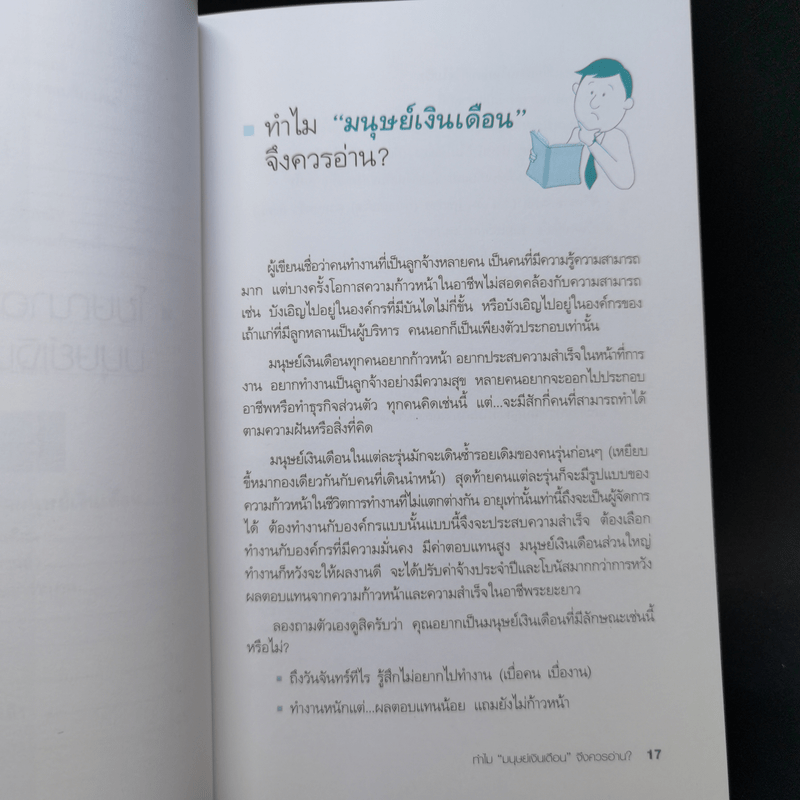 ทำไม “มนุษย์เงินเดือน”
จึงควรอ่าน?
ผู้เขียนเชื่อว่าคนทำงานที่เป็นลูกจ้างหลายคน เป็นคนที่มีความรู้ความสามารถ
มาก แต่บางครั้งโอกาสความก้าวหน้าในอาชีพไม่สอดคล้องกับความสามารถ
เช่น บังเอิญไปอยู่ในองค์กรที่มีบันไดไม่กี่ขั้น หรือบังเอิญไปอยู่ในองค์กรของ
เถ้าแก่ที่มีลูกหลานเป็นผู้บริหาร คนนอกก็เป็นเพียงตัวประกอบเท่านั้น
มนุษย์เงินเดือนทุกคนอยากก้าวหน้า อยากประสบความสำเร็จในหน้าที่การ
งาน อยากทำงานเป็นลูกจ้างอย่างมีความสุข หลายคนอยากจะออกไปประกอบ
อาชีพหรือทำธุรกิจส่วนตัว ทุกคนคิดเช่นนี้ แต่...จะมีสักกี่คนที่สามารถทำได้
ตามความฝันหรือสิ่งที่คิด
มนุษย์เงินเดือนในแต่ละรุ่นมักจะเดินซ้ำรอยเดิมของคนรุ่นก่อนๆ (เหยียบ
ขี้หมากองเดียวกันกับคนที่เดินนำหน้า) สุดท้ายคนแต่ละรุ่นก็จะมีรูปแบบของ
ความก้าวหน้าในชีวิตการทำงานที่ไม่แตกต่างกัน อายุเท่านั้นเท่านี้ถึงจะเป็นผู้จัดการ
ได้ ต้องทำงานกับองค์กรแบบนั้นแบบนี้จึงจะประสบความสำเร็จ ต้องเลือก
ทำงานกับองค์กรที่มีความมั่นคง มีค่าตอบแทนสูง มนุษย์เงินเดือนส่วนใหญ่
ทำงานก็หวังจะให้ผลงานดี จะได้ปรับค่าจ้างประจำปีและโบนัสมากกว่าการหวัง
ผลตอบแทนจากความก้าวหน้าและความสำเร็จในอาชีพระยะยาว
ลองถามตัวเองดูสิครับว่า คุณอยากเป็นมนุษย์เงินเดือนที่มีลักษณะเช่นนี้
หรือไม่?
▪ ถึงวันจันทร์ทีไร รู้สึกไม่อยากไปทำงาน (เบื่อคน เบื่องาน)
▪ ทำงานหนักแต่...ผลตอบแทนน้อย แถมยังไม่ก้าวหน้า
ทำไม “มนุษย์เงินเดือน” จึงควรอ่าน? 17